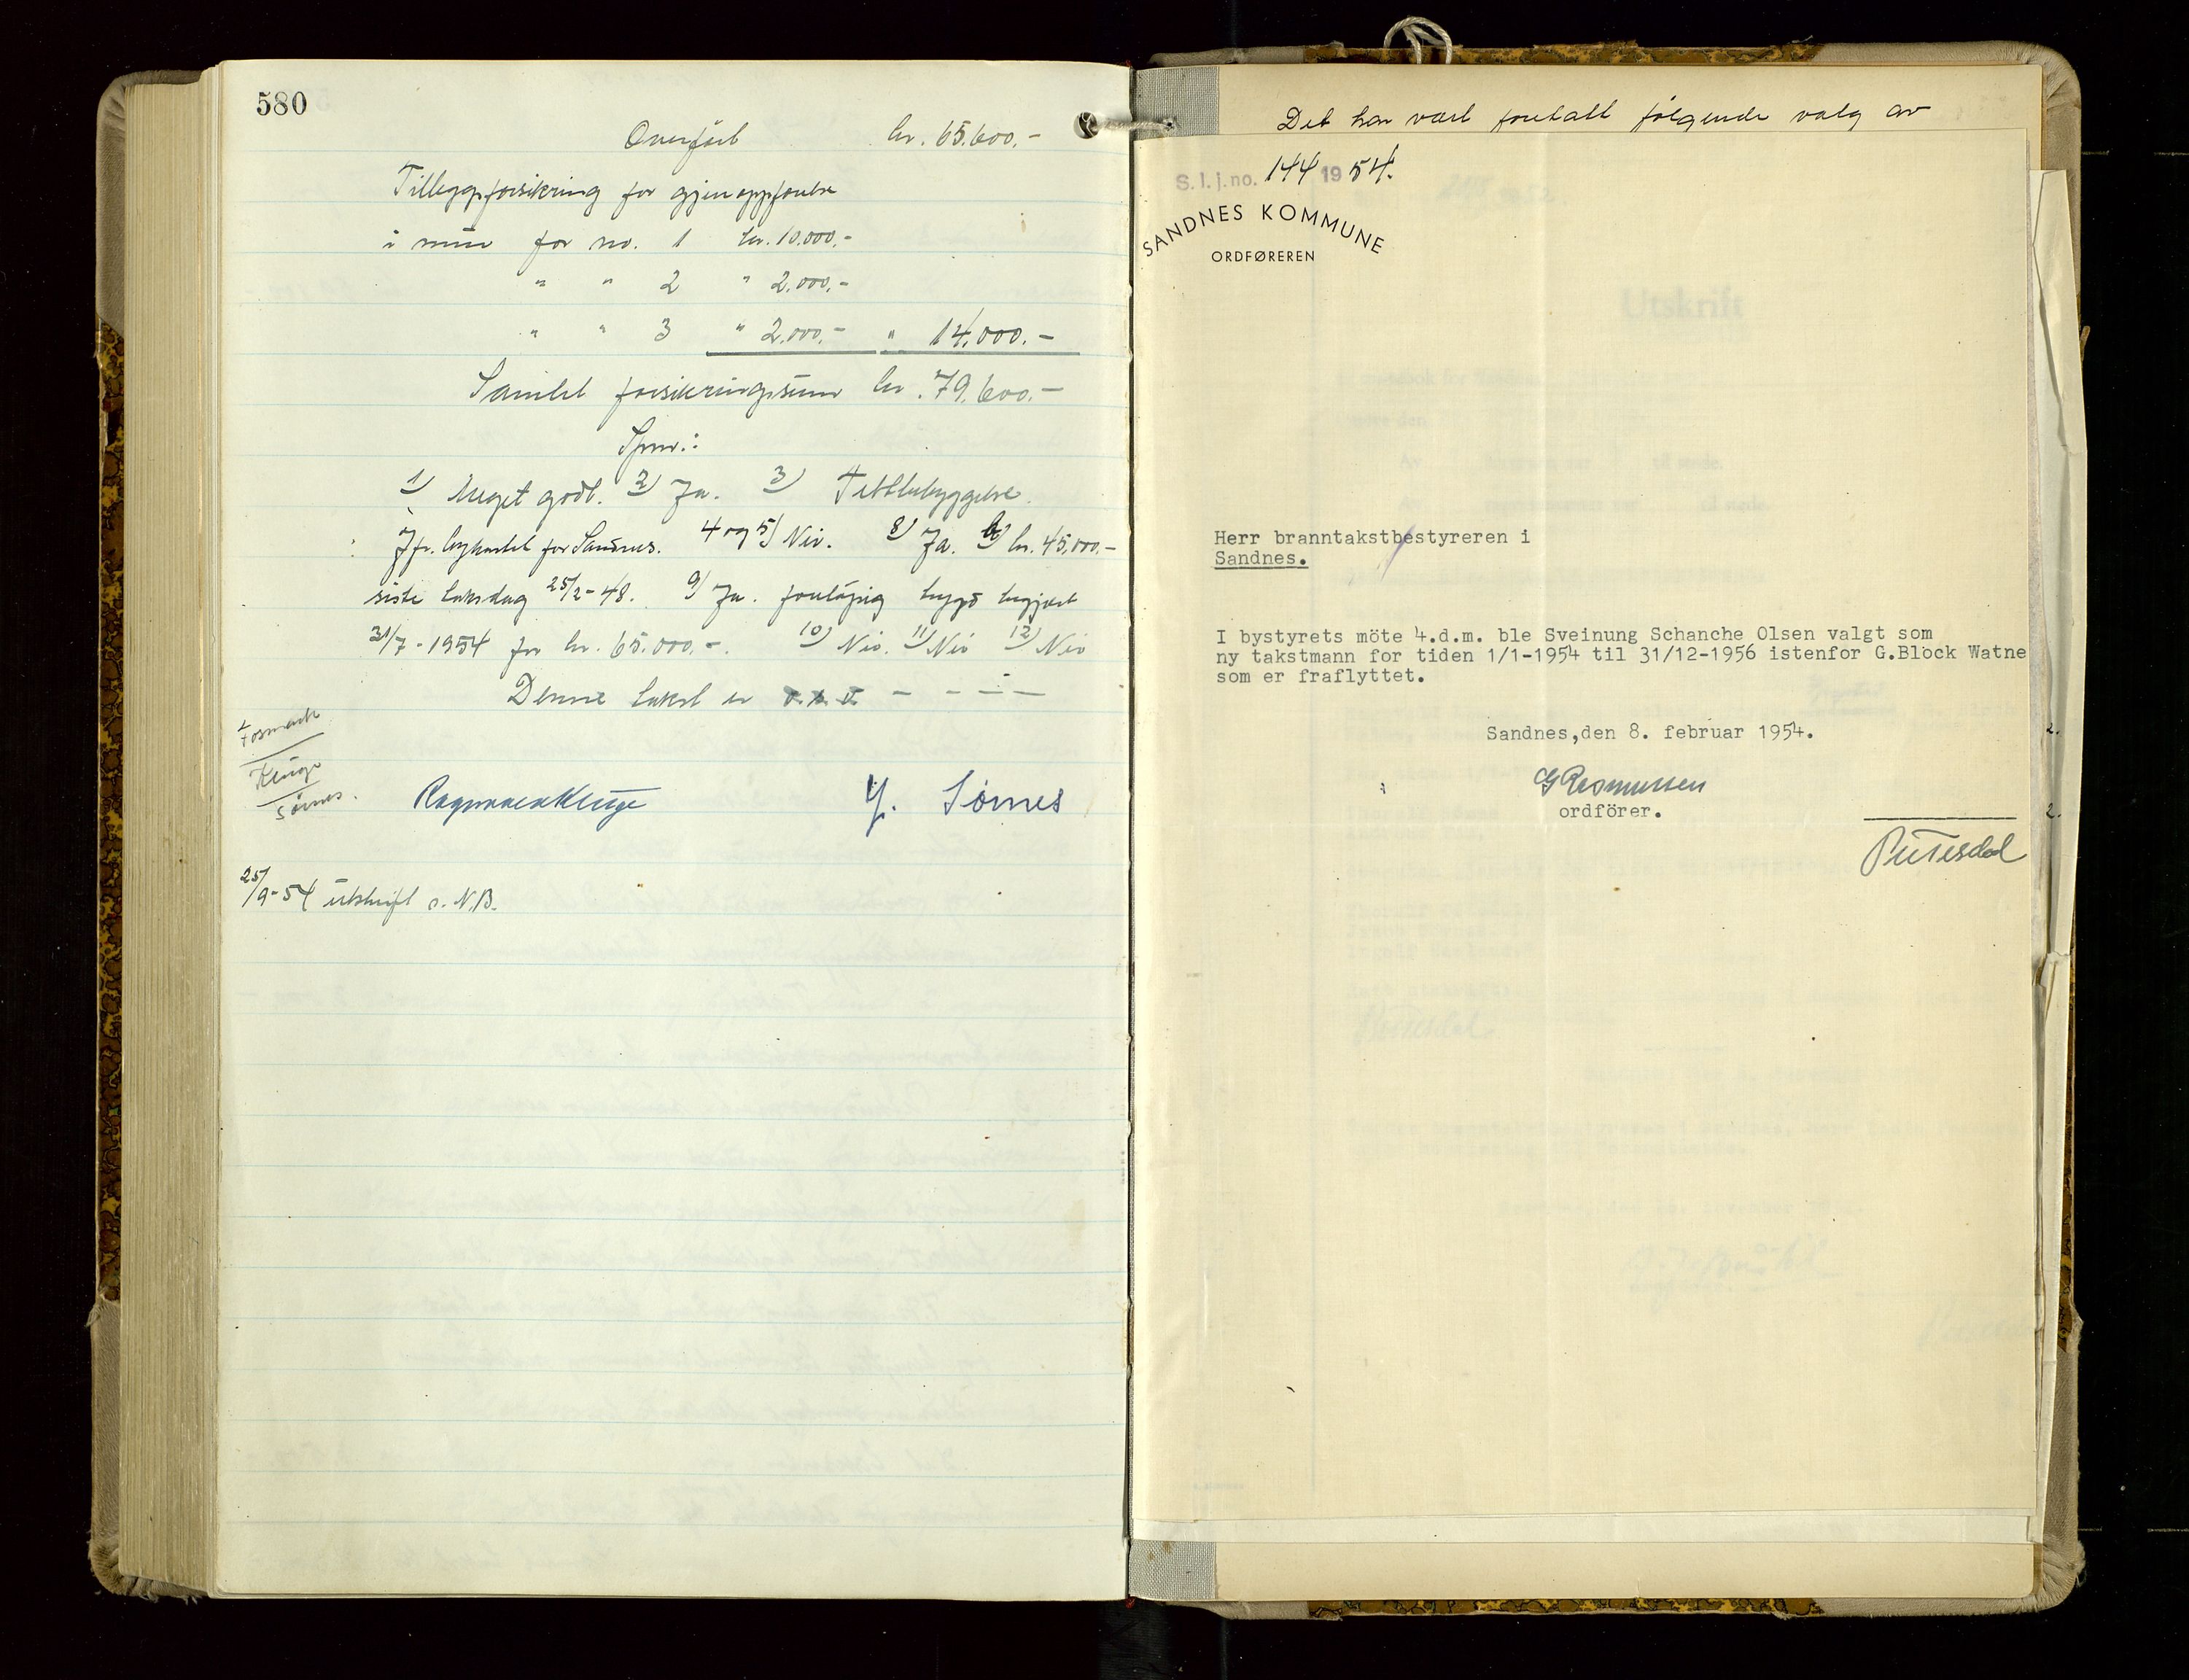 580
Overført kr. 65.600.-
Tilleggsforsikring for gjenoppførelse
i mur for no. 1 kr. 10.000.-
" " 2 " 2.000.-
" " 3 " 2.000.- " 14.000.-
Samlet forsikringssum kr. 79.600.-
Spm.:
1) Meget godt. 2) Ja. 3) Tettbebyggelse.
Jfr. bykartet for Sandnes. 4 og 5) Nei. 8) Ja. kr. 45.000.-
siste taksdag 25/2-48. 9) Ja. foreløpig bygd begjært
31/7-1954 for kr. 65.000.-. 10) Nei. 11) Nei 12) Nei
Denne takst er - - - -
Kluge
Sørnes.
Ragnvald Kluge Y. Sørnes
25/9-54 utskrift s. N.B.
Det har vært foretatt følgende valg av
S. l. j. no. 144 19 54.
SANDNES KOMMUNE
ORDFØREREN
Herr branntakstbestyreren i
Sandnes.
I bystyrets möte 4.d.m. ble Sveinung Schanche Olsen valgt som
ny takstmann for tiden 1/1-1954 til 31/12-1956 istenfor G.Block Watne
som er fraflyttet.
Sandnes,den 8. februar 1954.
G Rasmussen
ordförer.
2.
2.